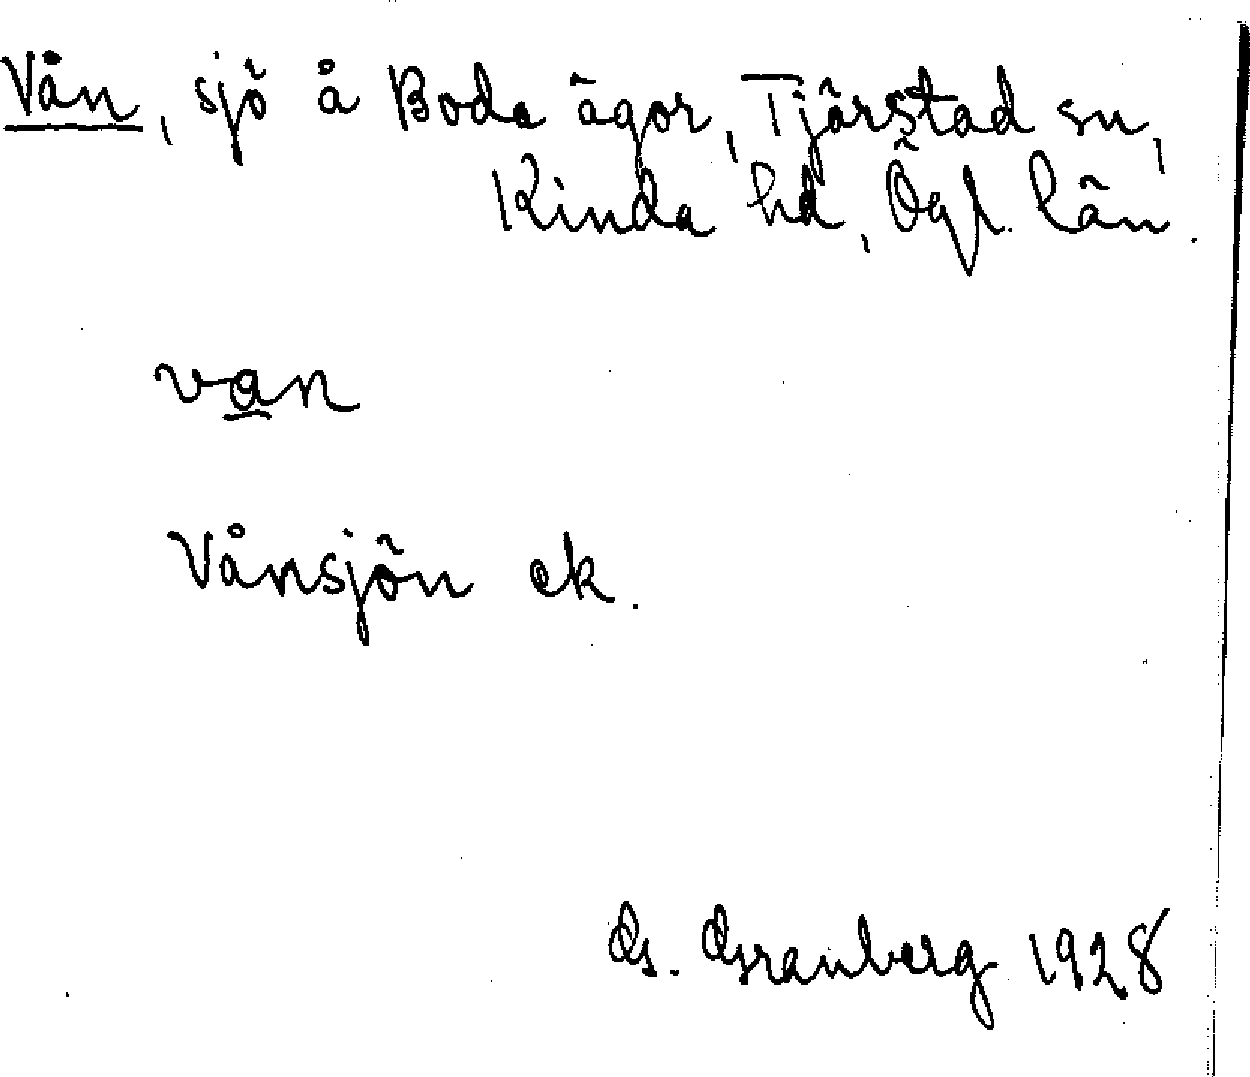 Vån, sjö å Boda ägor, Tjärstad sn,
Kinda hd, Ögl. län.
van
Vånsjön ek.
G. Granberg 1928